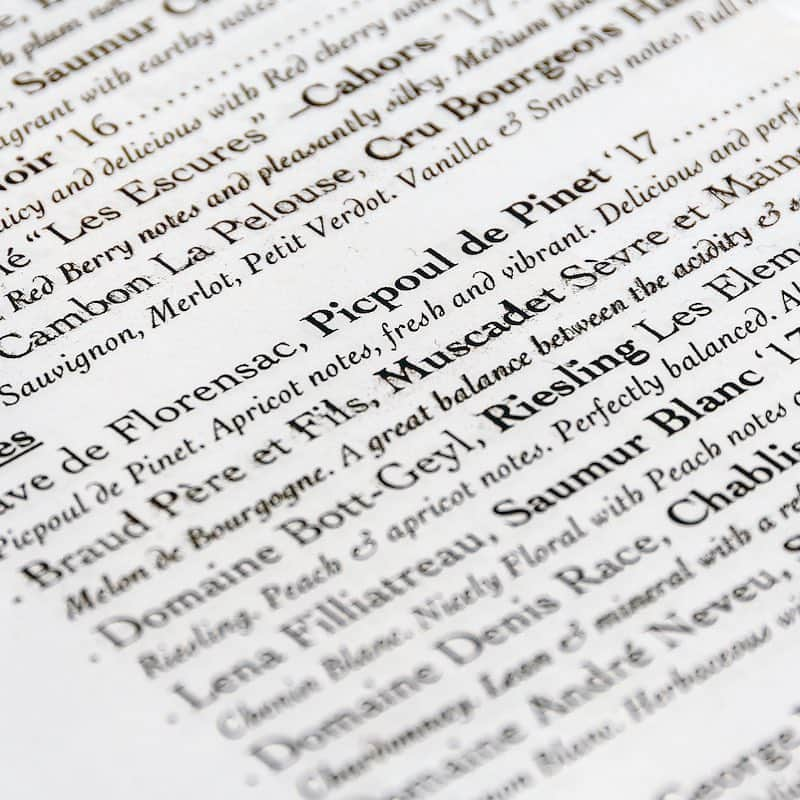 plum notes
Saumur
fragrant with earthy notes
Noir '16
juicy and delicious with Red cherry notes
"Les Escures" -Cahors- '17
Red Berry notes and pleasantly silky. Medium
Cambon La Pelouse, Cru Bourgeois
Sauvignon, Merlot, Petit Verdot. Vanilla & Smokey notes. Full
de Florensac, Picpoul de Pinet '17
Picpoul de Pinet. Apricot notes, fresh and vibrant. Delicious and
Braud Père et Fils, Muscadet Sèvre et
Melon de Bourgogne. A great balance between the acidity &
Domaine Bott-Geyl, Riesling Les
Riesling. Peach & apricot notes. Perfectly balanced.
Lena Filliatreau, Saumur Blanc '17
Chenin Blanc. Nicely Floral with Peach notes
Domaine Denis Race, Chablis
Chardonnay. Lean & mineral with a
Domaine André Neveu,
Blanc. Herbaceous
George